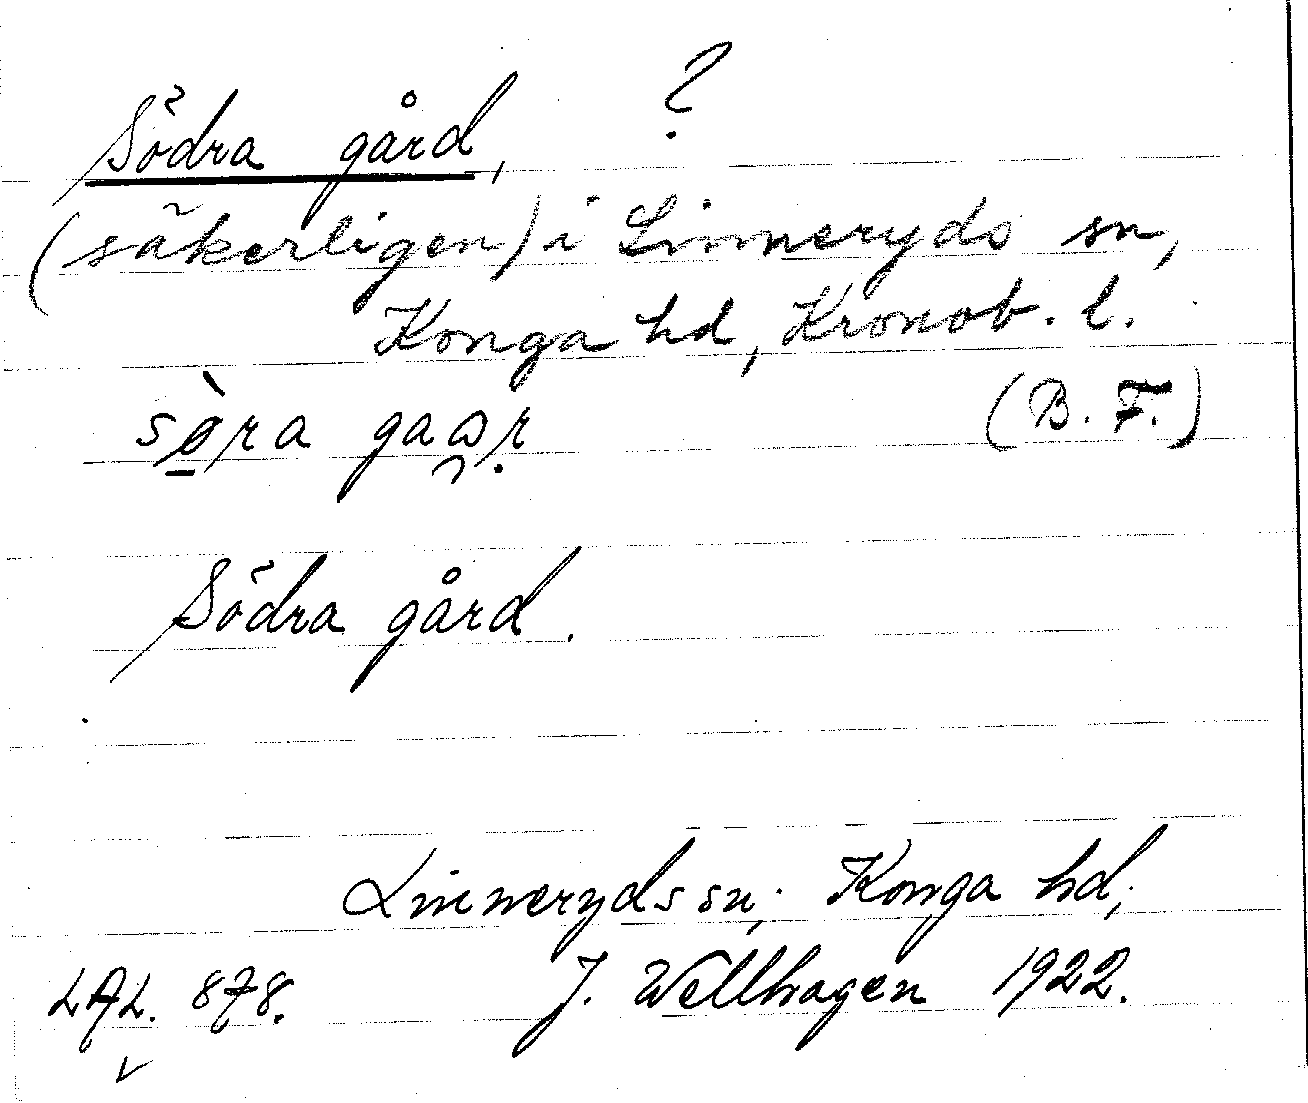 Södra gård, ?
(säkerligen) i Linneryds sn,
Konga hd, Kronob. l.
sø̠̀ra gaω̯ṛ (B. F.)
Södra gård.
Linneryds sn; Konga hd;
LAL. 878. J. Wellhagen 1922.